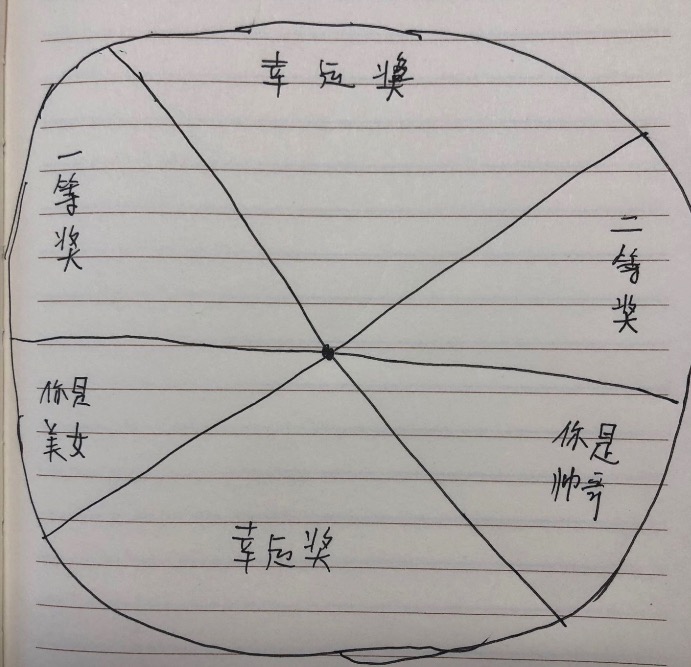 幸运奖
一等奖
二等奖
你是
美女
你是
帅哥
幸运奖